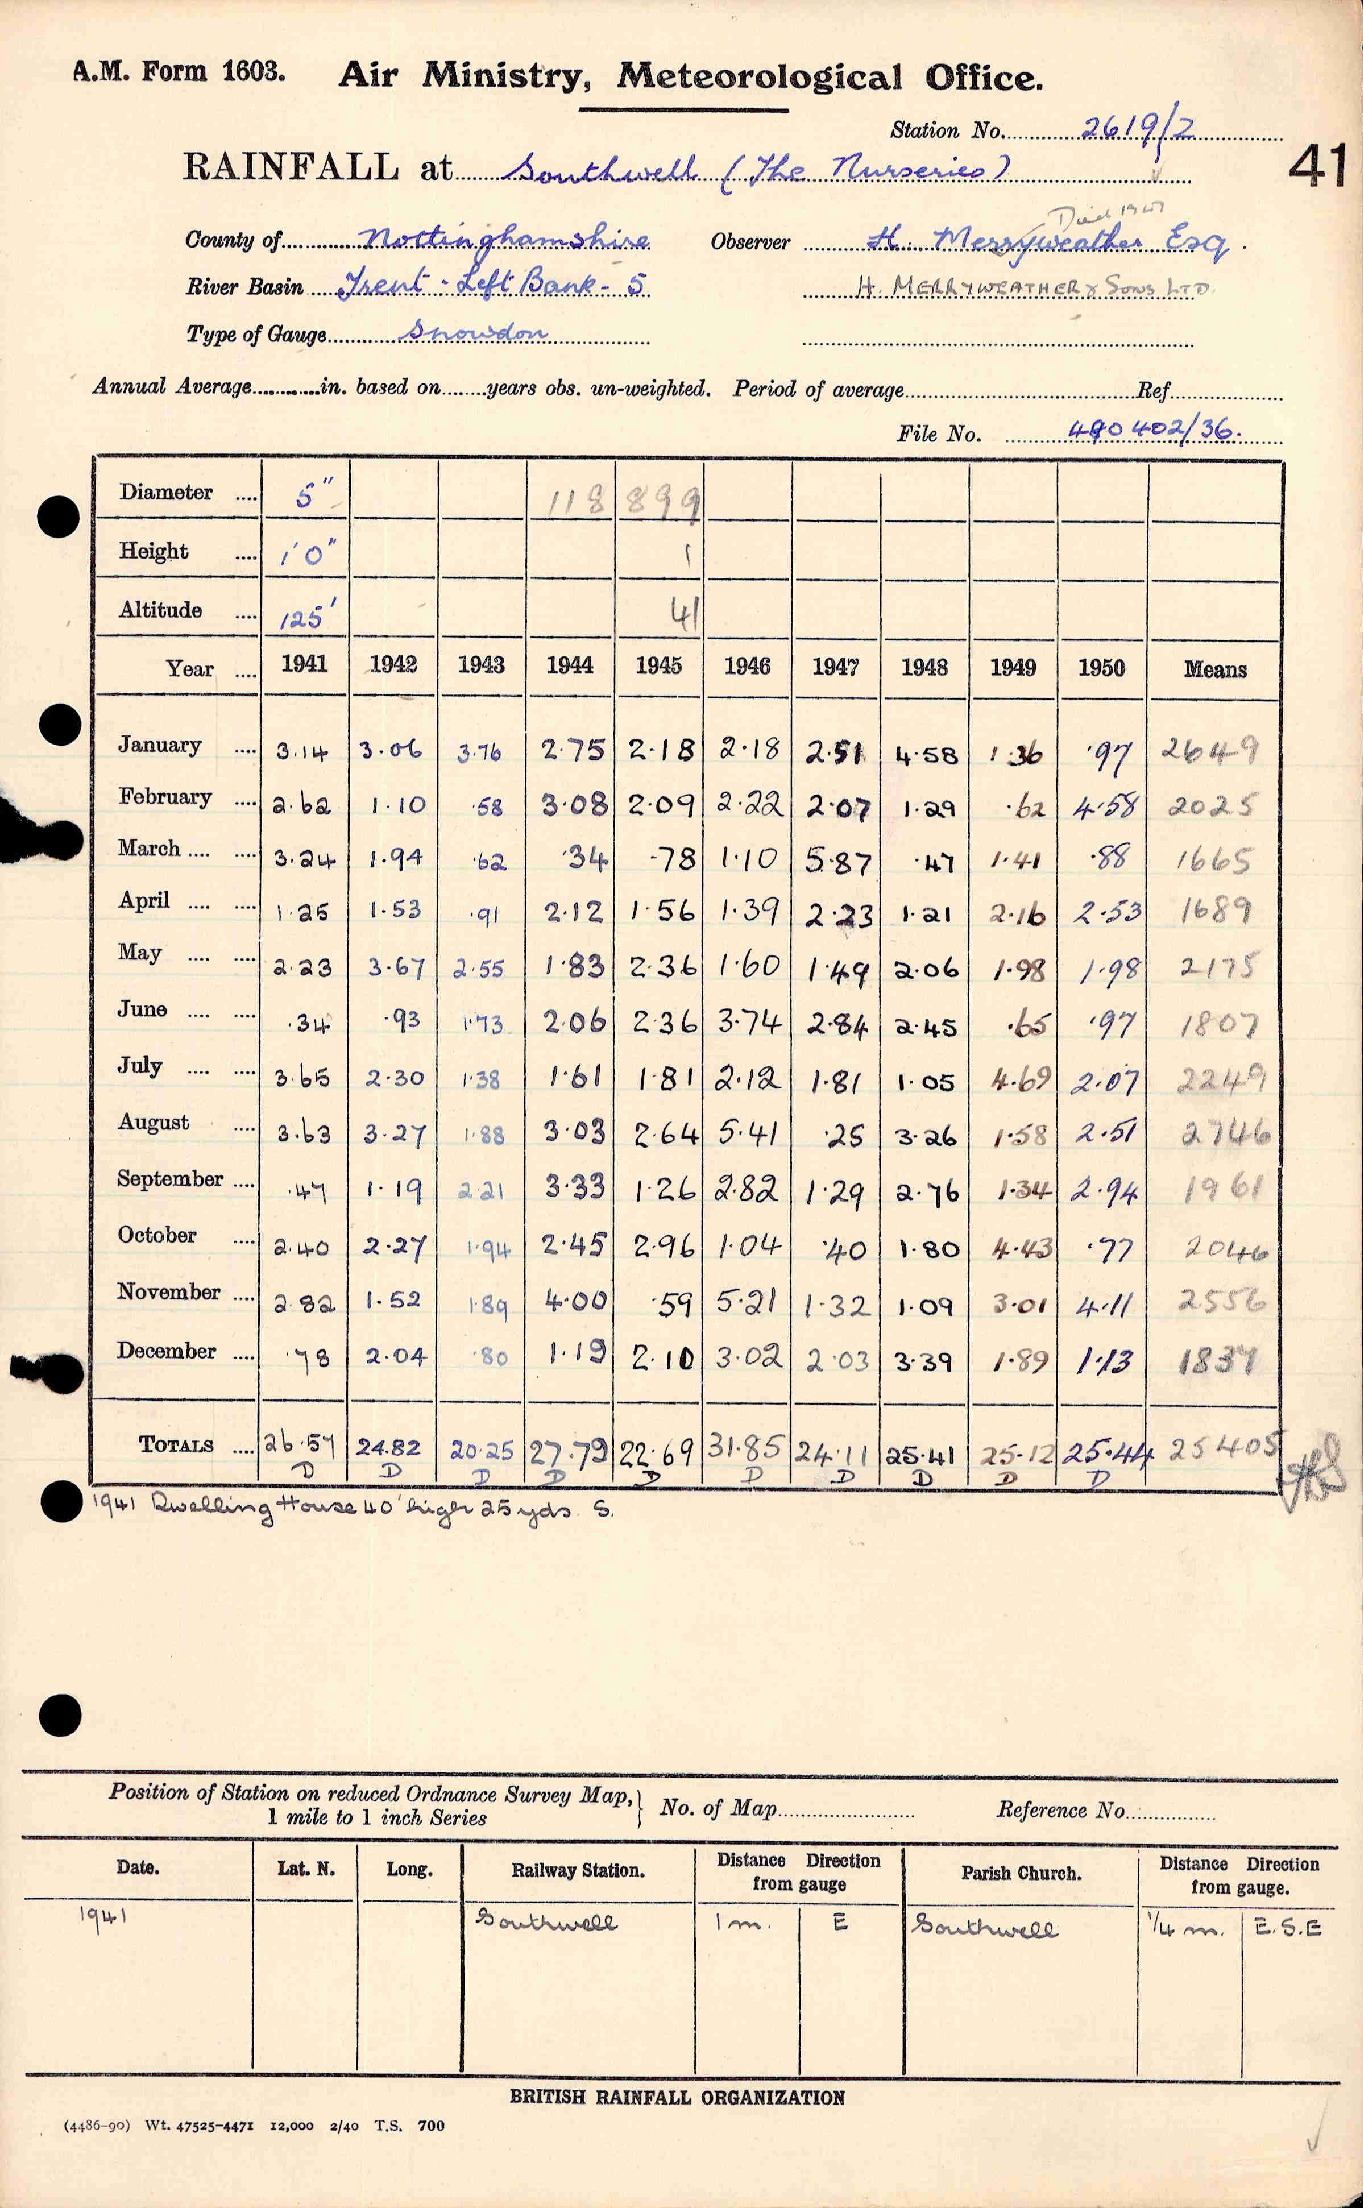 A.M. Form 1603. Air Ministry, Meteorological Office.
Station No. 2619/2
41
RAINFALL at Southwell (The Nurseries)
Died 1947
County of Nottinghamshire Observer H. Merryweather Esq.
River Basin Trent - Left Bank - 5 H. MERRYWEATHER & SONS LTD.
Type of Gauge Snowdon
Annual Average in. based on years obs. un-weighted. Period of average Ref
File No. 490402/36.
Diameter 5" 118 899
Height 1'0" 1
Altitude 125' 41
Year 1941 1942 1943 1944 1945 1946 1947 1948 1949 1950 Means
January 3.14 3.06 3.76 2.75 2.18 2.18 2.51 4.58 1.36 .97 2649
February 2.62 1.10 .58 3.08 2.09 2.22 2.07 1.29 .62 4.58 2025
March 3.24 1.94 .62 .34 .78 1.10 5.87 .47 1.41 .88 1665
April 1.25 1.53 .91 2.12 1.56 1.39 2.23 1.21 2.16 2.53 1689
May 2.23 3.67 2.55 1.83 2.36 1.60 1.49 2.06 1.98 1.98 2175
June .34 .93 1.73 2.06 2.36 3.74 2.84 2.45 .65 .97 1807
July 3.65 2.30 1.38 1.61 1.81 2.12 1.81 1.05 4.69 2.07 2249
August 3.63 3.27 1.88 3.03 2.64 5.41 .25 3.26 1.58 2.51 2746
September .47 1.19 2.21 3.33 1.26 2.82 1.29 2.76 1.34 2.94 1961
October 2.40 2.27 1.94 2.45 2.96 1.04 .40 1.80 4.43 .77 2046
November 2.82 1.52 1.89 4.00 .59 5.21 1.32 1.09 3.01 4.11 2556
December .78 2.04 .80 1.19 2.10 3.02 2.03 3.39 1.89 1.13 1837
TOTALS 26.57 24.82 20.25 27.79 22.69 31.85 24.11 25.41 25.12 25.44 25405
D D D D D D D D D D
1941 Dwelling House 40' high 25 yds. S.
Position of Station on reduced Ordnance Survey Map, No. of Map Reference No.
1 mile to 1 inch Series
Date. Lat. N. Long. Railway Station. Distance Direction from gauge Parish Church. Distance Direction from gauge.
1941 Southwell 1 m. E Southwell 1/4 m. E.S.E
BRITISH RAINFALL ORGANIZATION
(4486-90) Wt. 47525-4471 12,000 2/40 T.S. 700